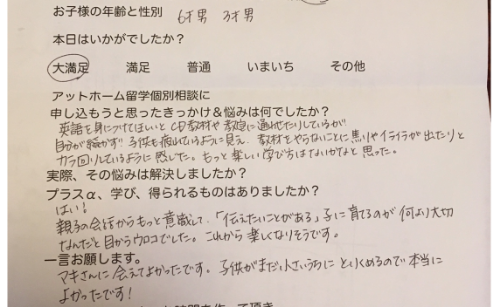 お子様の年齢と性別 6才男 3才男
本日はいかがでしたか?
大満足 満足 普通 いまいち その他
アットホーム留学個別相談に
申し込もうと思ったきっかけ&悩みは何でしたか?
英語を身につけてほしいとCD教材や教室に通わせたりしているが
自分が続かず子供も嫌がっているように見え、教材をやらないことに焦りやイライラが出たりと
カラ回りしているように感じた。もっと楽しい学び方はないかなと思った。
実際、その悩みは解決しましたか?
プラスα、学び、得られるものはありましたか?
はい!
親子の会話からもっと意識して、「伝えたいことがある」子に育てるのが何より大切
なんだと目からウロコでした。これから楽しくなりそうです。
一言お願します。
マキさんに会えてよかったです。子供がまだ小さいうちにとりくめるので本当に
よかったです!